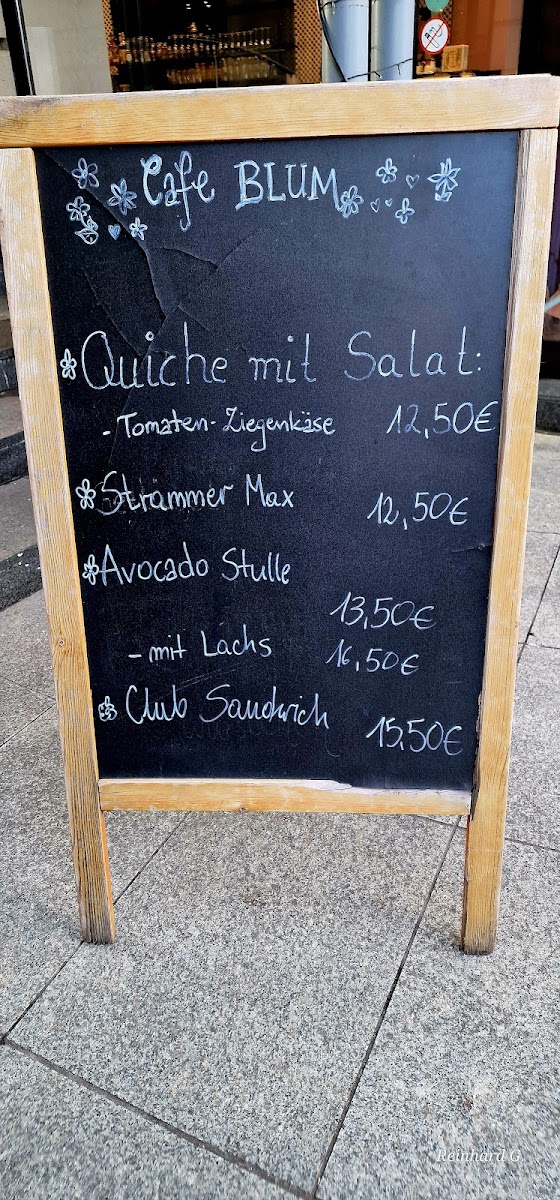 Cafe BLUM
Quiche mit Salat:
- Tomaten-Ziegenkäse 12,50€
Strammer Max 12,50€
Avocado Stulle
13,50€
- mit Lachs 16,50€
Club Sandwich
15,50€
Reinhard G.